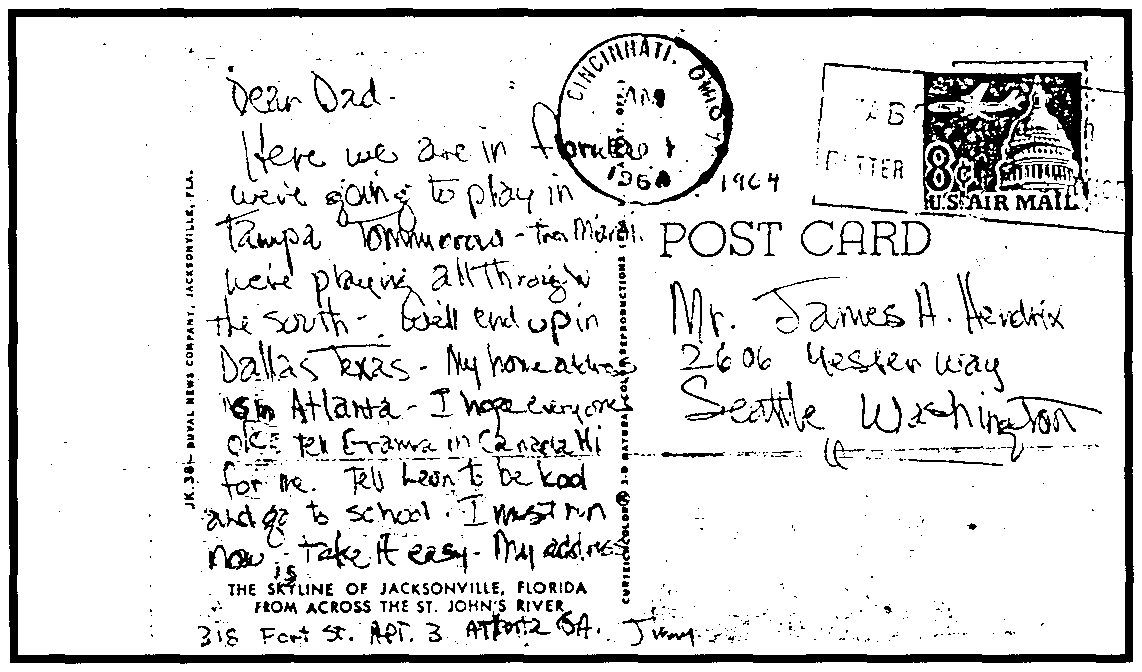 Dear Dad -
Here we are in
we're going to play in
Tampa Tommorow -
we're playing all through
the south - We'll end up in
Dallas Texas - My home address
is in Atlanta - I hope everyone
ok - Tell Grama in Canada Hi
for me. Tell Leon to be kool
and go to school. I must run
now - take it easy - My address
is
THE SKYLINE OF JACKSONVILLE, FLORIDA
FROM ACROSS THE ST. JOHN'S RIVER
318 Fort St. APT. 3 Atlanta GA. Jimmy
JK.38 - DUVAL NEWS COMPANY, JACKSONVILLE, FLA.
CURTEICHCOLOR® 3-D NATURAL COLOR REPRODUCTIONS
CINCINNATI, OHIO
1964
1964
8¢
U.S. AIR MAIL
POST CARD
Mr. James H. Hendrix
2606 Yesler Way
Seattle Washington